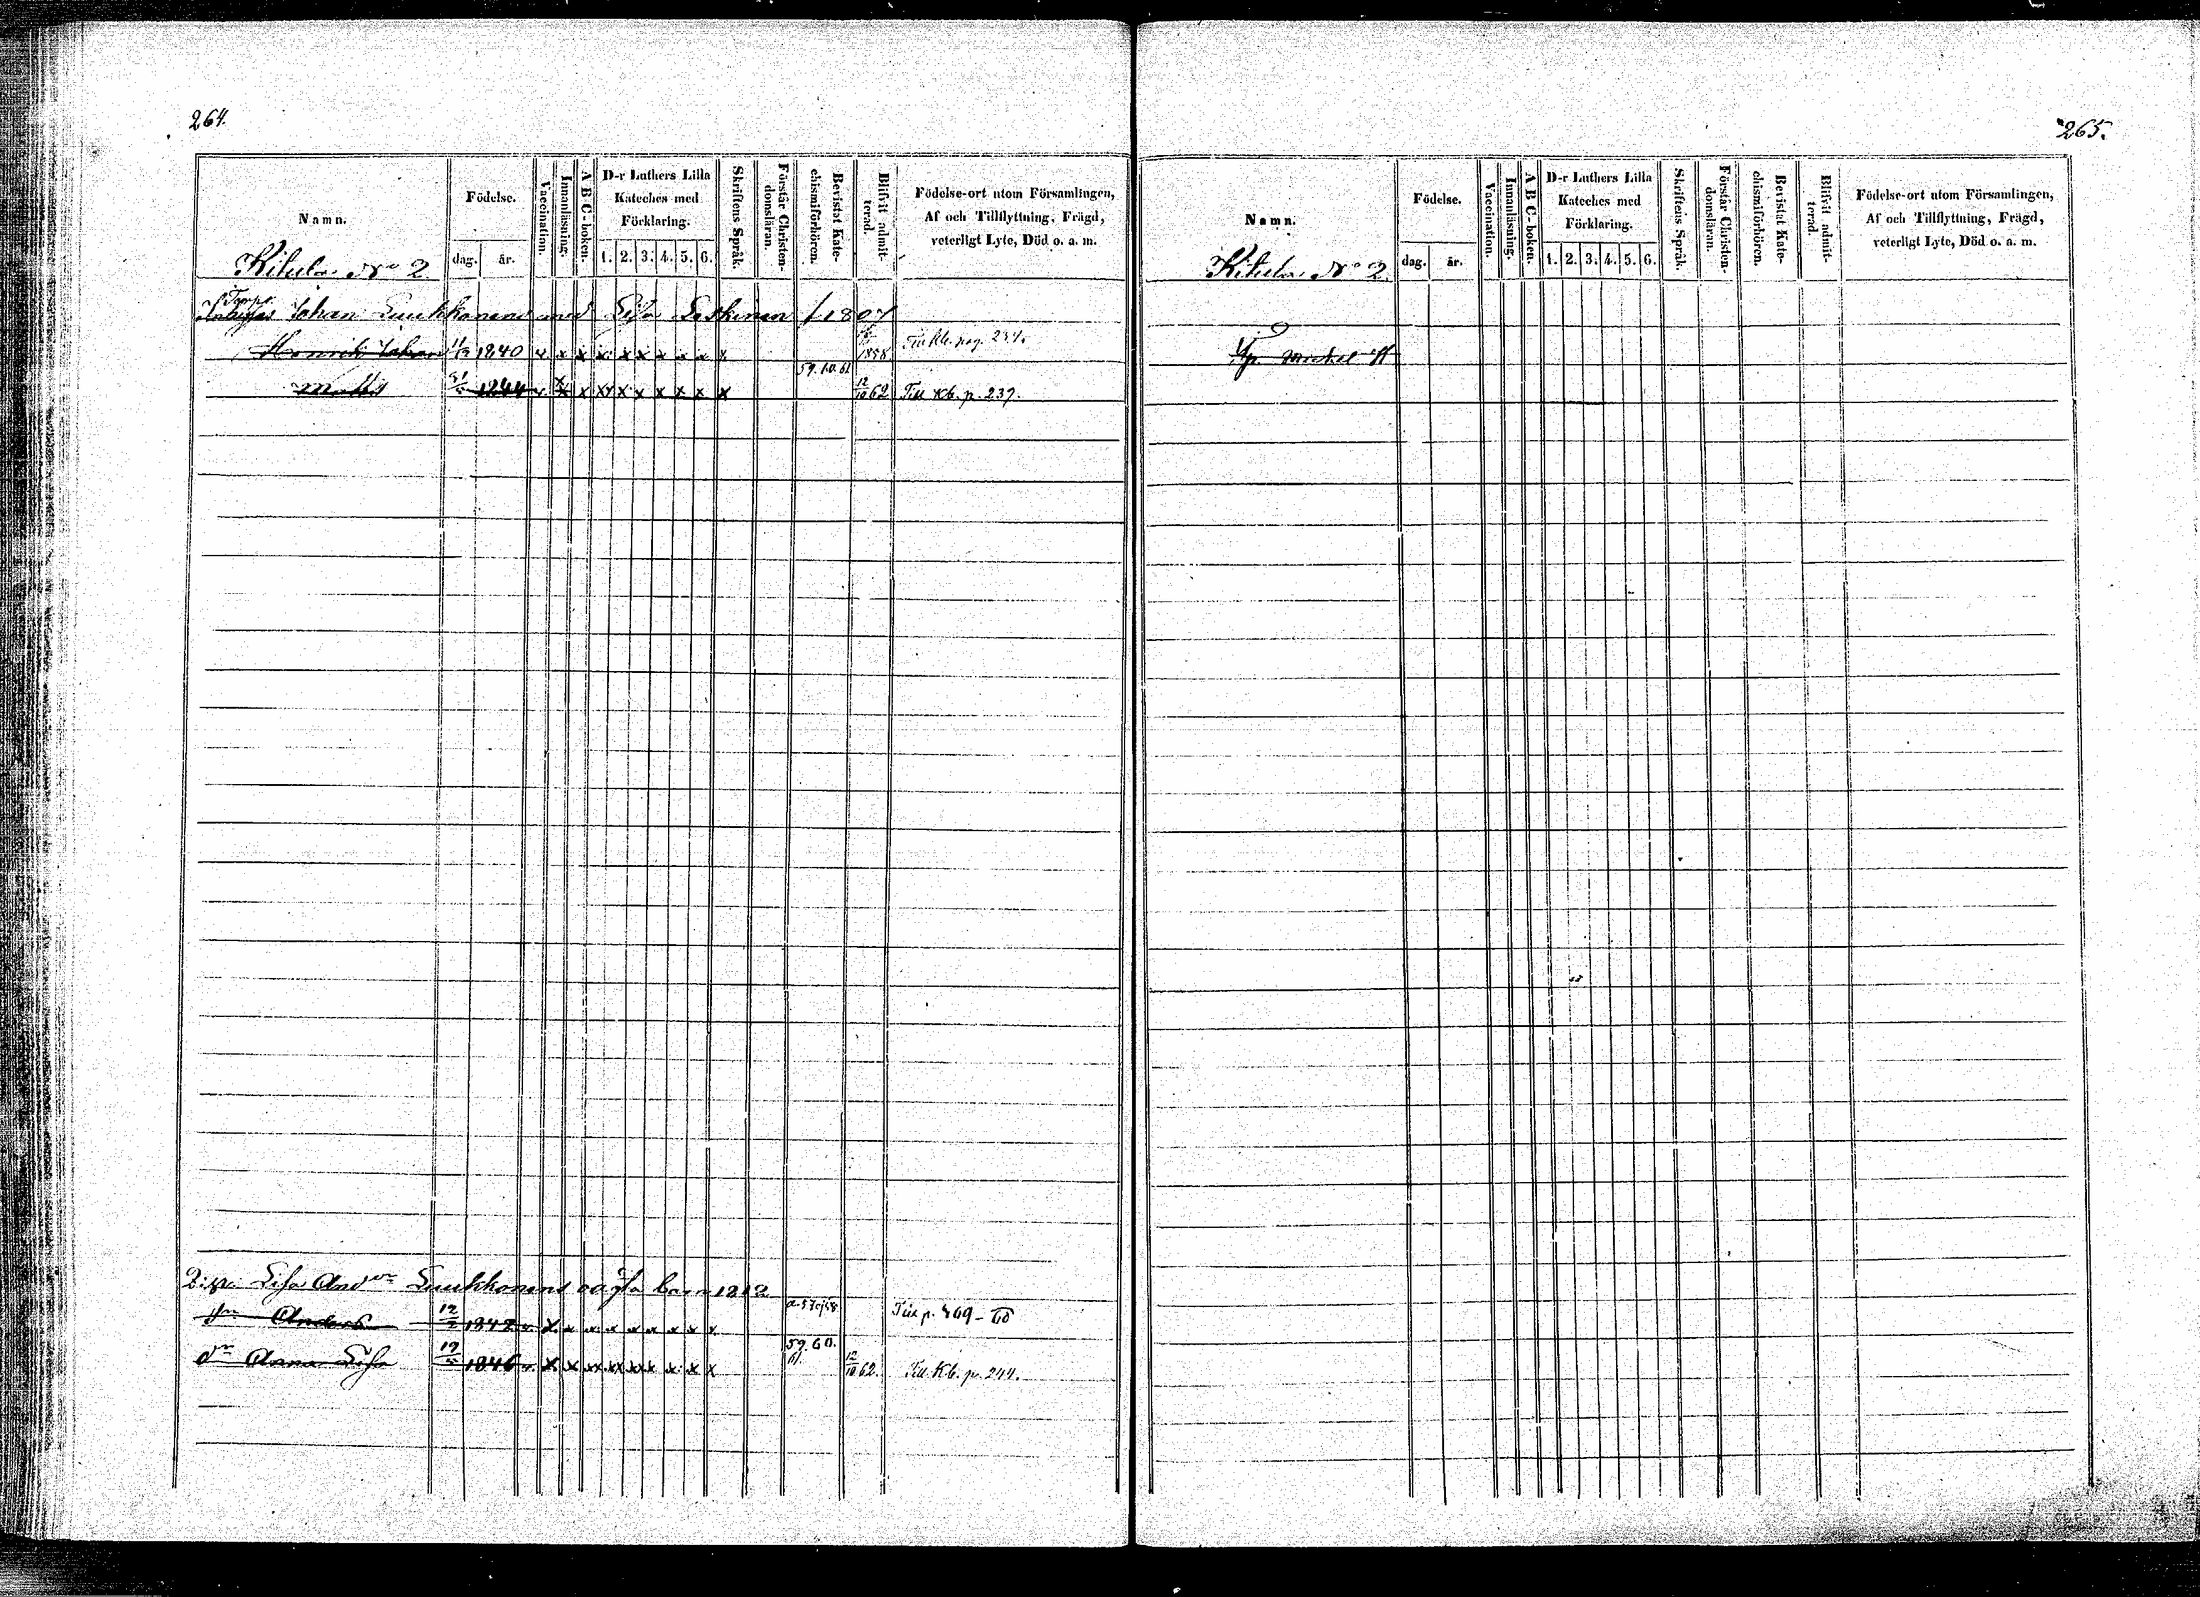 264.
Namn.
Födelse.
dag. år.
Vaccination.
Innanläsning.
A B C-boken.
D-r Luthers Lilla
Kateches med
Förklaring.
1. 2. 3. 4. 5. 6.
Skriftens Språk.
Förstår Christen-
domsläran.
Bevistat Kate-
chismiförhören.
Blifvit admit-
terad.
Födelse-ort utom Församlingen,
Af och Tillflyttning, Frägd,
veterligt Lyte, Död o. a. m.
No 2
Torp.
Johan Luukkonens med Lisa Leskinen f 1807
Henrik Johan 1840 v. x x x x x x x x x 1858
59. 60. 61
Matts 1844 v. x x x x x x x x x 12/10 62 Till Kb. p. 239.
Lisa And Luukkonens oägta barn 1812
Anders 12 1842 v. x x x x x x x x x Till p. 409 - III
59. 60.
61.
dr Anna Lisa 1846 v. x x xx xx xx x x x x 12/10 62. Till Kb. p. 244.
265.
Namn.
Födelse.
dag. år.
Vaccination.
Innanläsning.
A B C-boken.
D-r Luthers Lilla
Kateches med
Förklaring.
1. 2. 3. 4. 5. 6.
Skriftens Språk.
Förstår Christen-
domsläran.
Bevistat Kate-
chismiförhören.
Blifvit admit-
terad.
Födelse-ort utom Församlingen,
Af och Tillflyttning, Frägd,
veterligt Lyte, Död o. a. m.
No 2